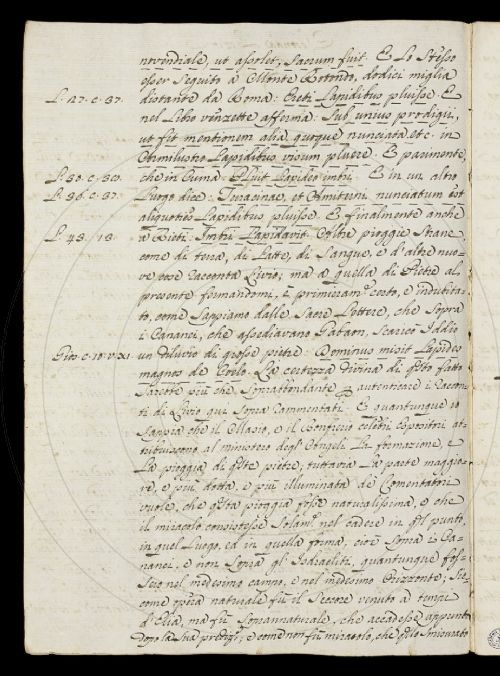 novendiale, ut assolet, sacrum fuit. E lo stesso
esser seguito à Monte Rotondo, dodici miglia
L. 27. c. 37. distante da Roma: Ereti lapidibus pluisse. E
nel Libro afferma: Sub unius prodigii,
ut fit mentionem alia quoque nunciata etc. in
Armilustro lapidibus visum pluere. E parimente,
L. 30. c. 30. che in Cuma: Pluit lapideo imbri. E in un altro
L. 36. c. 37. Luogo dice: Terracinae, et Amiterni nunciatum est
aliquoties lapidibus pluisse. E finalmente anche
L. 43. 13. à Rieti: Imbri lapidavit. Oltre pioggie strane,
come di terra, di latte, di sangue, e d'altre nuo-
ve cose racconta Livio; ma à quella di Pietre al
presente fermandomi, è primieram.e certo, e indubita-
to, come sappiamo dalle Sacre Lettere, che sopra
i Cananei, che assediavano Gabaon, scaricò Iddio
Gios. c. 10. v. XI un diluvio di grosse pietre: Dominus misit lapides
magnos de Coelo. La certezza divina di q.to fatto
sarebbe più che soprabbondante ad autenticare i raccon-
ti di Livio qui sopra rammentati. E quantunque io
sappia che il Masio, e il Bonfrerio celebri espositori at-
tribuiscono al ministero degl'Angeli la formazione, e
la pioggia di q.ste pietre; tuttavia la parte maggio-
re, e più dotta, e più illuminata de Comentatori
vuole, che q.sta pioggia fosse naturalissima, e che
il miracolo consistesse solam.e nel cadere in q.l punto,
in quel luogo, ed in quella forma, cioè sopra i Ca-
nanei, e non sopra gl'Isdraeliti, quantunque fos-
sero nel medesimo campo, e nel medesimo Orizzonte; sic-
come opera naturale fù il seccore venuto à tempi
d'Elia, ma fù soprannaturale, che accadesse appunto
dopo la sua e come non fù miracolo, che q.llo smisurato